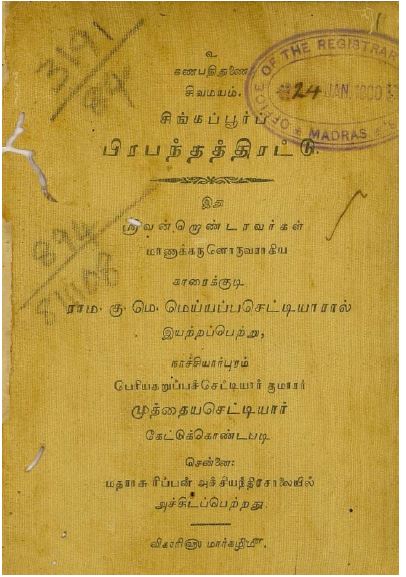 உ
கணபதிதுணை
சிவமயம்.
சிங்கப்பூர்ப்
பிரபந்தத்திரட்டு.
இது
ஸ்ரீவன்றொண்டரவர்கள்
மாணாக்கருளொருவராகிய
காரைக்குடி
ராம. கு. மெ. மெய்யப்பசெட்டியாரால்
இயற்றப்பெற்று,
நாச்சியார்புரம்
பெரியகறுப்பச்செட்டியார் குமாரர்
முத்தையசெட்டியார்
கேட்டுக்கொண்டபடி
சென்னை:
மதராசு ரிப்பன் அச்சியந்திரசாலையில்
அச்சிடப்பெற்றது.
விகாரி௵ மார்கழி௴.
3191
894
894
81108
OFFICE OF THE REGISTRAR
24 JAN. 1900
MADRAS